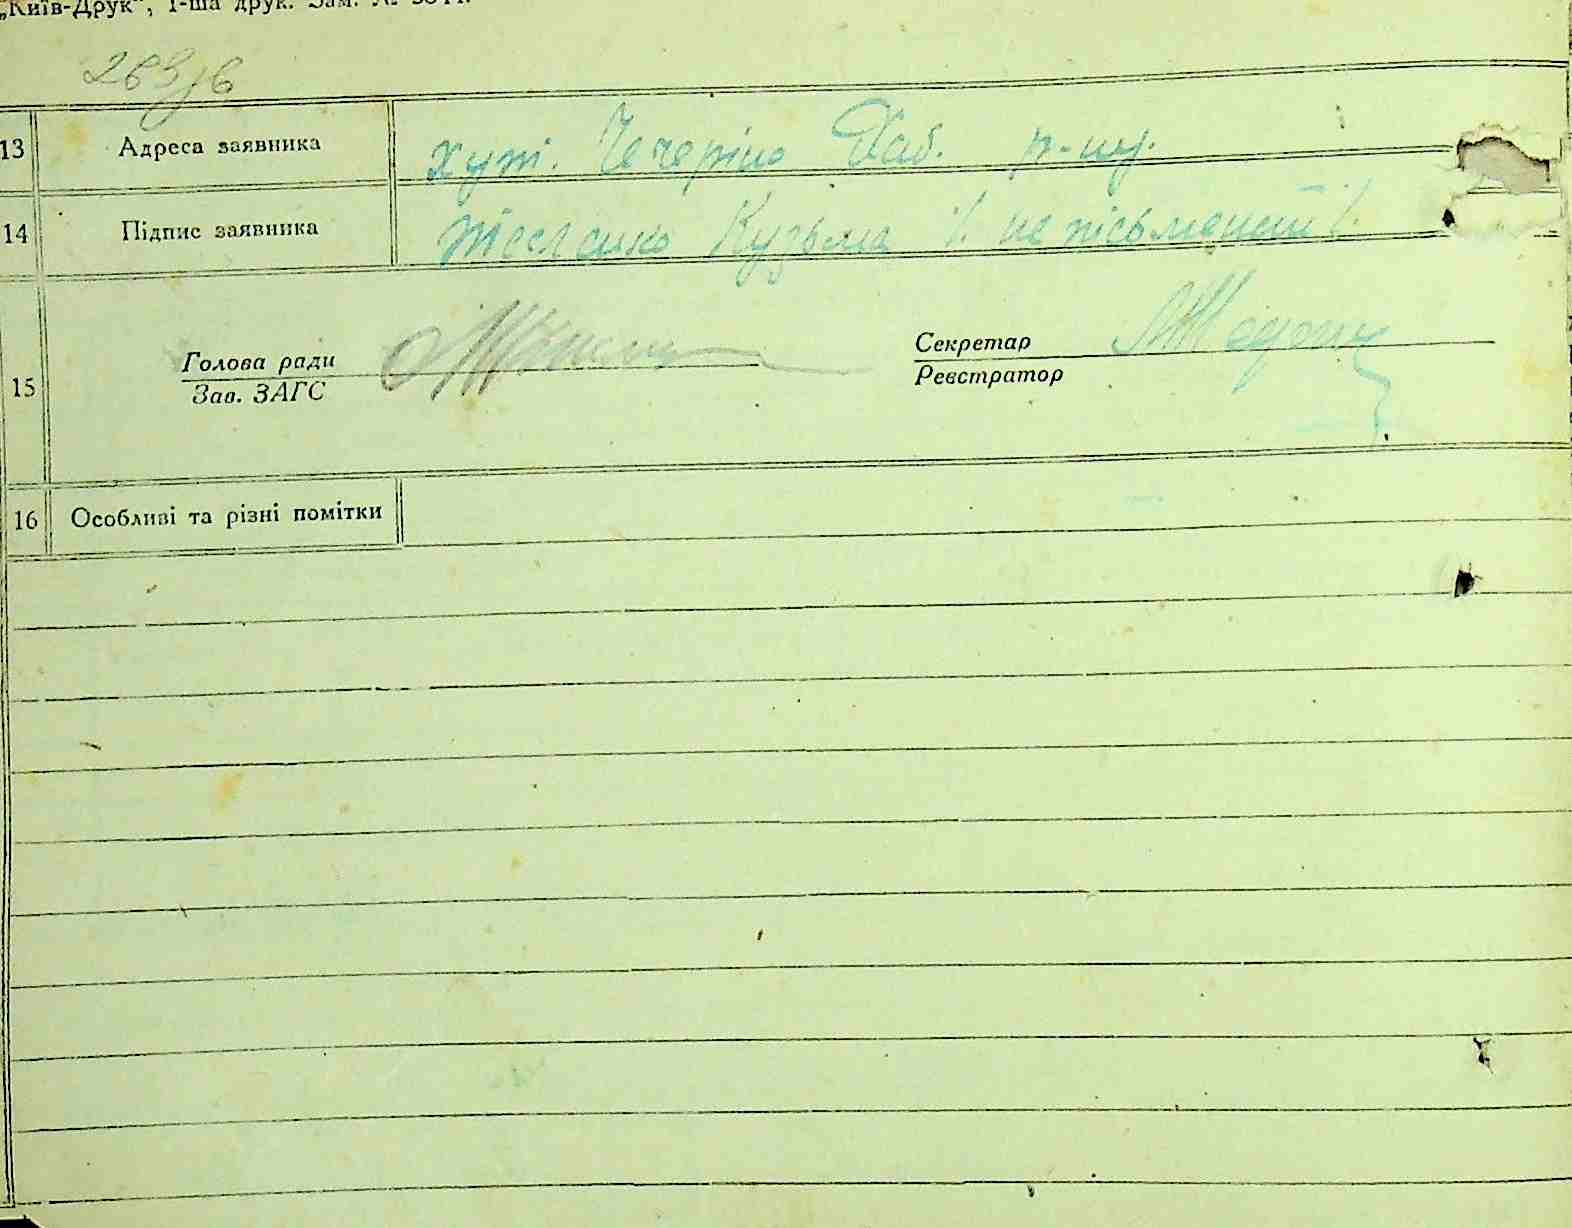 „Київ-Друк", 1-ша друк. Зам. №
13 Адреса заявника хут. Чечеріно Хаб. р-ну.
14 Підпис заявника Теслenko Кузьма /. не пісьменний /.
Голова ради Секретар
15 Зав. ЗАГС Реєстратор
16 Особливі та різні помітки